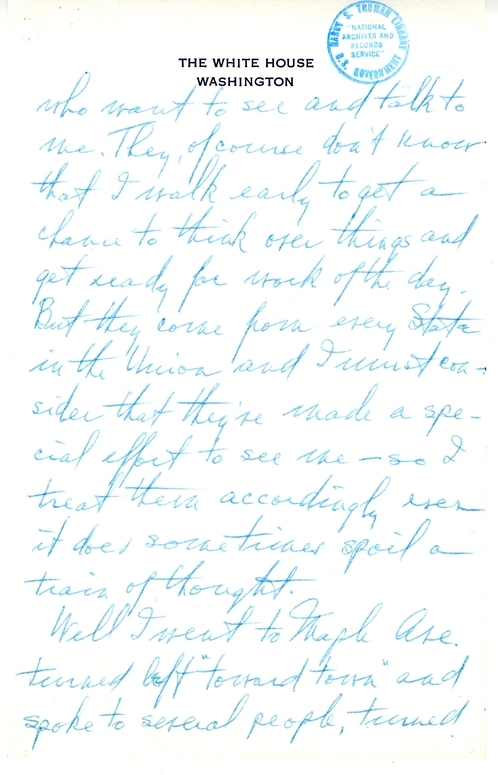 HARRY S. TRUMAN LIBRARY
"NATIONAL
ARCHIVES AND
RECORDS
SERVICE"
U.S. GOVERNMENT
THE WHITE HOUSE
WASHINGTON
who want to see and talk to
me. They, of course don't know
that I walk early to get a
chance to think over things and
get ready for work of the day.
But they come from every State
in the Union and I must con-
sider that they've made a spe-
cial effort to see me – so I
treat them accordingly even
it does sometimes spoil a
train of thought.
Well I went to Maple Ave.
turned left "toward town" and
spoke to several people, turned